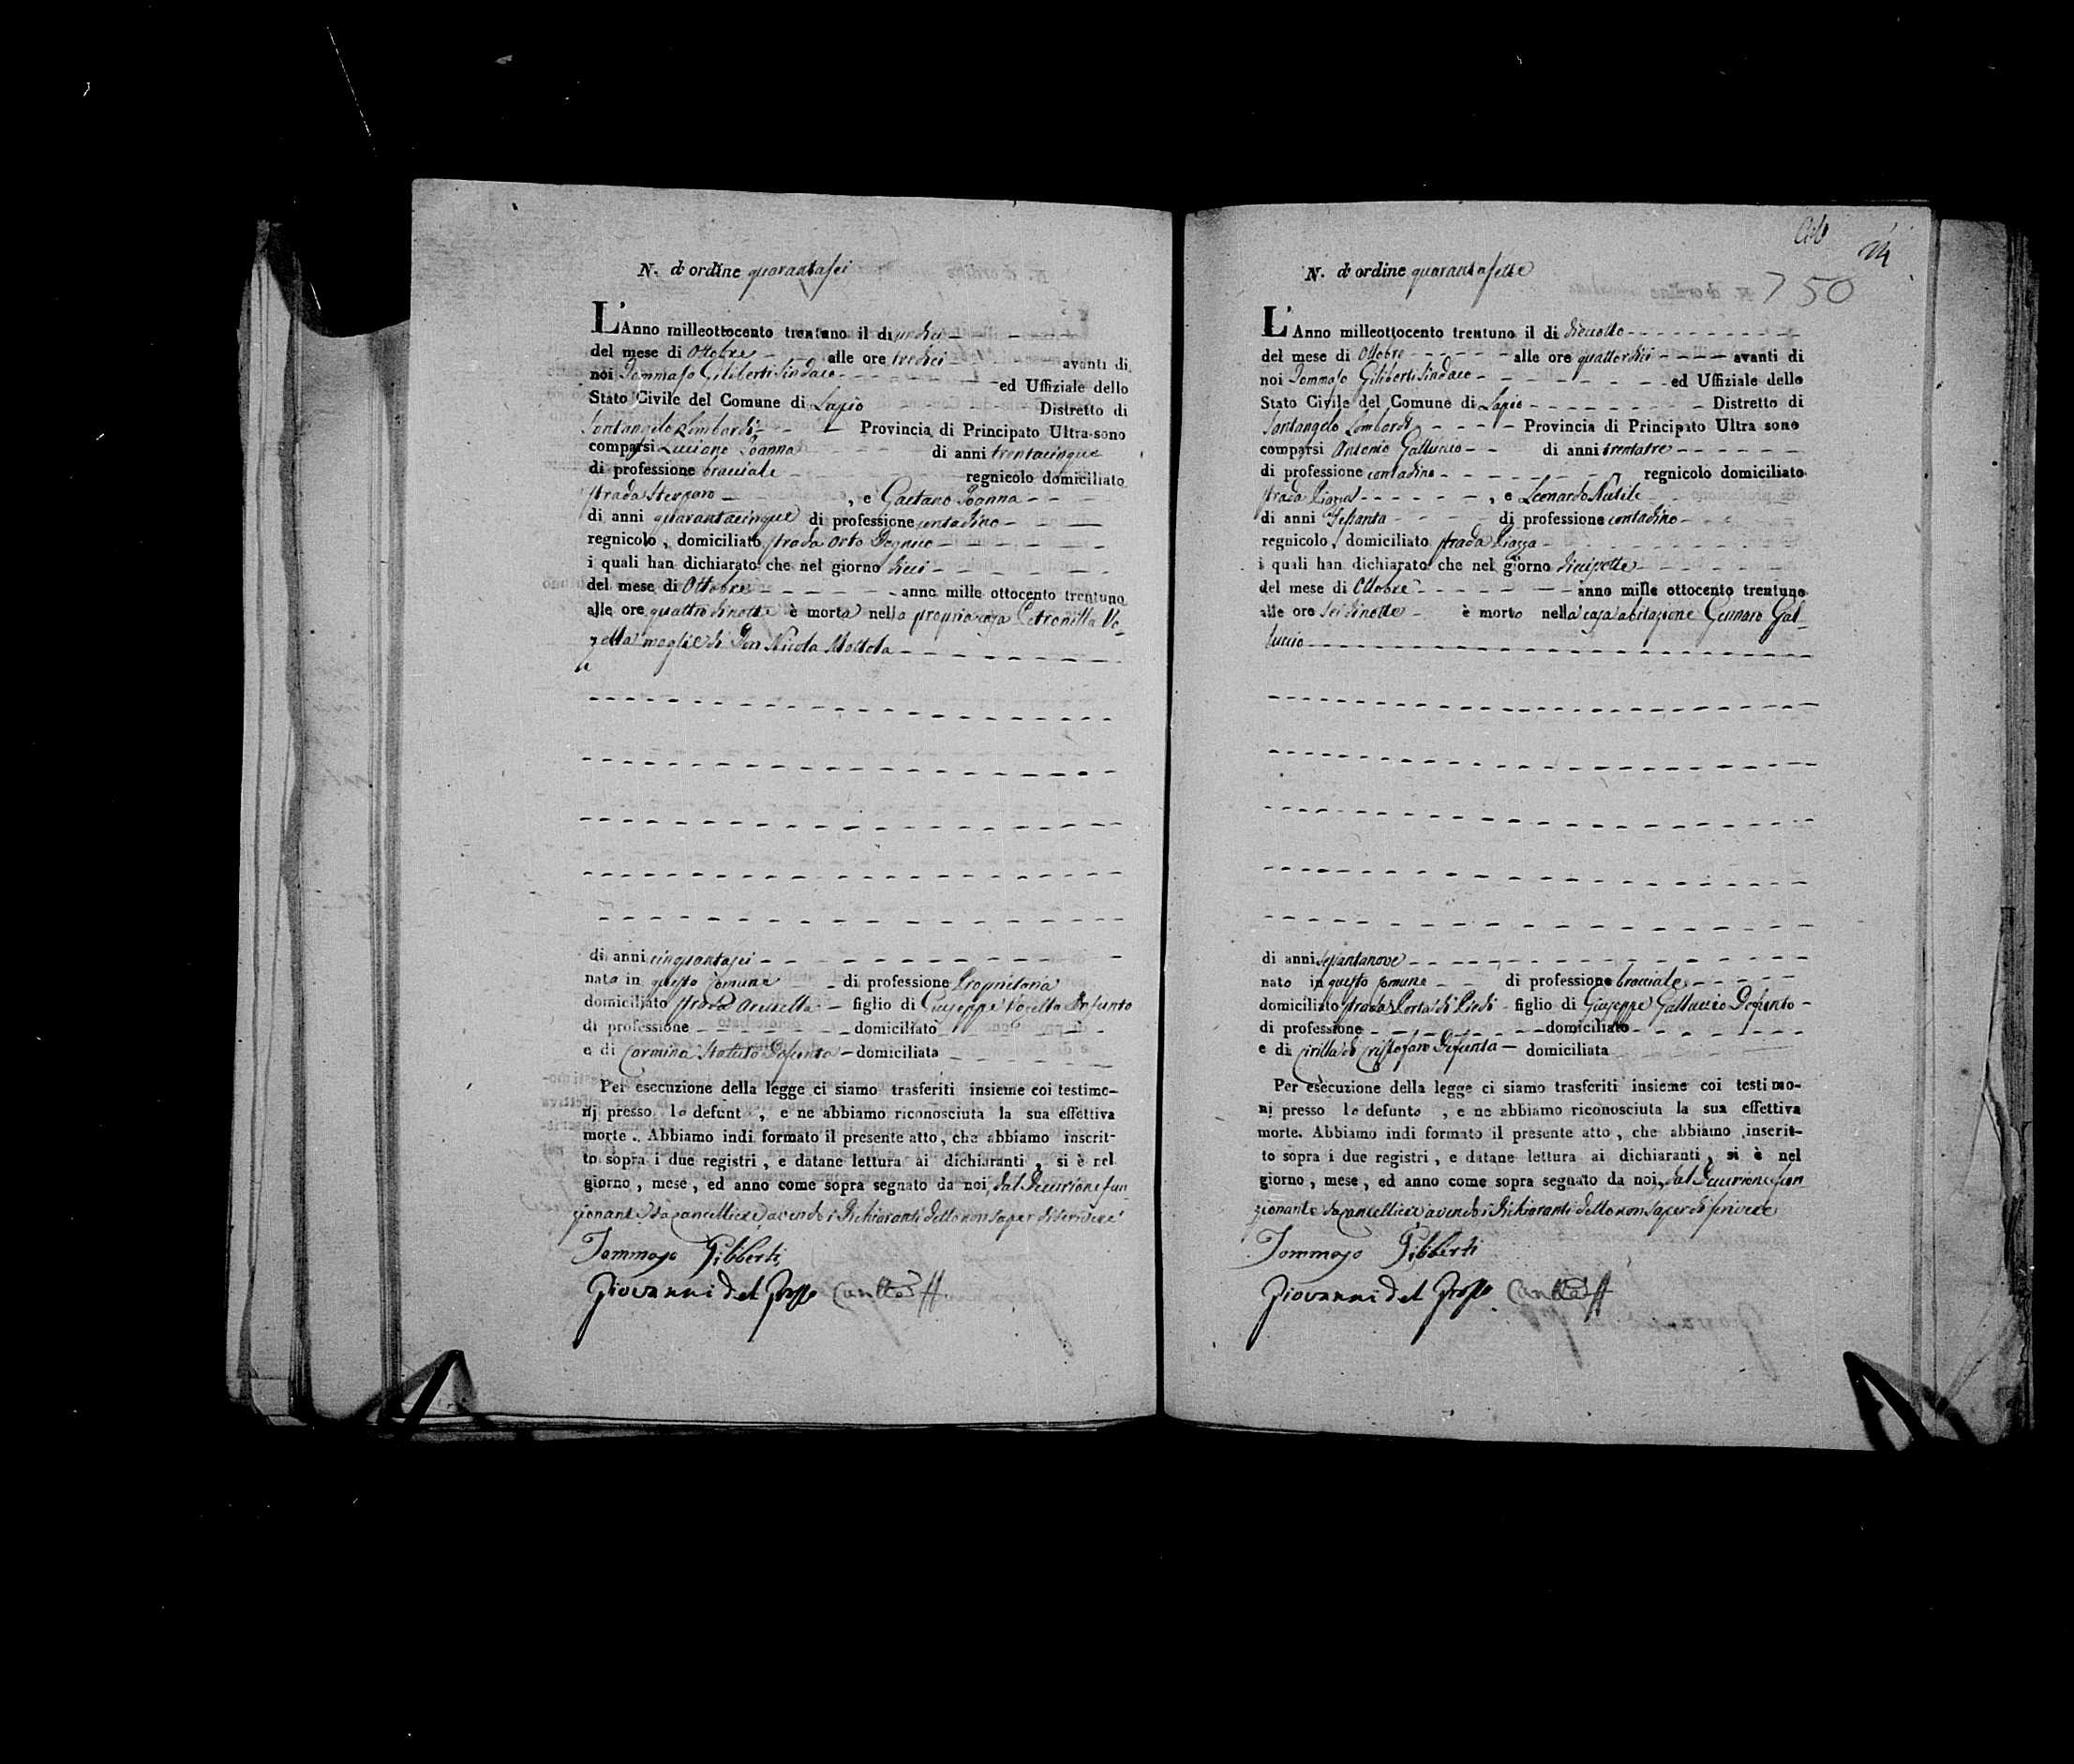 N. d'ordine quarantasei
L'Anno milleottocento trentuno il di undici
del mese di Ottobre alle ore tredici avanti di
noi Tommaso Giliberti Sindaco ed Uffiziale dello
Stato Civile del Comune di Lapio Distretto di
Santangelo Lombardi Provincia di Principato Ultra sono
comparsi Luciano Ioanna di anni trentacinque
di professione bracciale regnicolo domiciliato
strada , e Gaetano Ioanna
di anni quarantacinque di professione contadino
regnicolo , domiciliato strada Orto
i quali han dichiarato che nel giorno dieci
del mese di Ottobre anno mille ottocento trentuno
alle ore quattro di notte è morta nella propria casa Petronilla Vo-
zella moglie di Don Nicola Mottola
di anni cinquantasei
nata in questo Comune di professione Proprietaria
domiciliato strada figlio di Giuseppe Vozella Defunto
di professione domiciliato
e di Carmina Statuto Defunta domiciliata
Per esecuzione della legge ci siamo trasferiti insieme coi testimo-
nj presso la defunta , e ne abbiamo riconosciuta la sua effettiva
morte . Abbiamo indi formato il presente atto , che abbiamo inscrit-
to sopra i due registri , e datane lettura ai dichiaranti , si è nel
giorno , mese , ed anno come sopra segnato da noi, dal Decurione fun-
zionante da Cancelliere avendo i Dichiaranti detto non saper di scrivere
Tommaso Giliberti
Giovanni del Grosso
750
N. d'ordine quarantasette
L'Anno milleottocento trentuno il di diciotto
del mese di Ottobre alle ore quattordici avanti di
noi Tommaso Giliberti Sindaco ed Uffiziale dello
Stato Civile del Comune di Lapio Distretto di
Santangelo Lombardi Provincia di Principato Ultra sono
comparsi Antonio Galluccio di anni trentatre
di professione contadino regnicolo domiciliato
strada Piazza , e Leonardo Nutile
di anni Sessanta di professione contadino
regnicolo , domiciliato strada Piazza
i quali han dichiarato che nel giorno diecisette
del mese di Ottobre anno mille ottocento trentuno
alle ore sei di notte è morto nella casa abitazione Gennaro Gal-
luccio
di anni sessantanove
nato in questo Comune di professione bracciale
domiciliato strada Porta di Piedi figlio di Giuseppe Galluccio Defunto
di professione domiciliato
e di Cirilla di Cristofaro Defunta domiciliata
Per esecuzione della legge ci siamo trasferiti insieme coi testimo-
nj presso lo defunto , e ne abbiamo riconosciuta la sua effettiva
morte. Abbiamo indi formato il presente atto , che abbiamo inscrit-
to sopra i due registri , e datane lettura ai dichiaranti , si è nel
giorno , mese , ed anno come sopra segnato da noi, dal Decurione fun
zionante da Cancelliere avendo i Dichiaranti detto non saper di scrivere
Tommaso Giliberti
Giovanni del Grosso